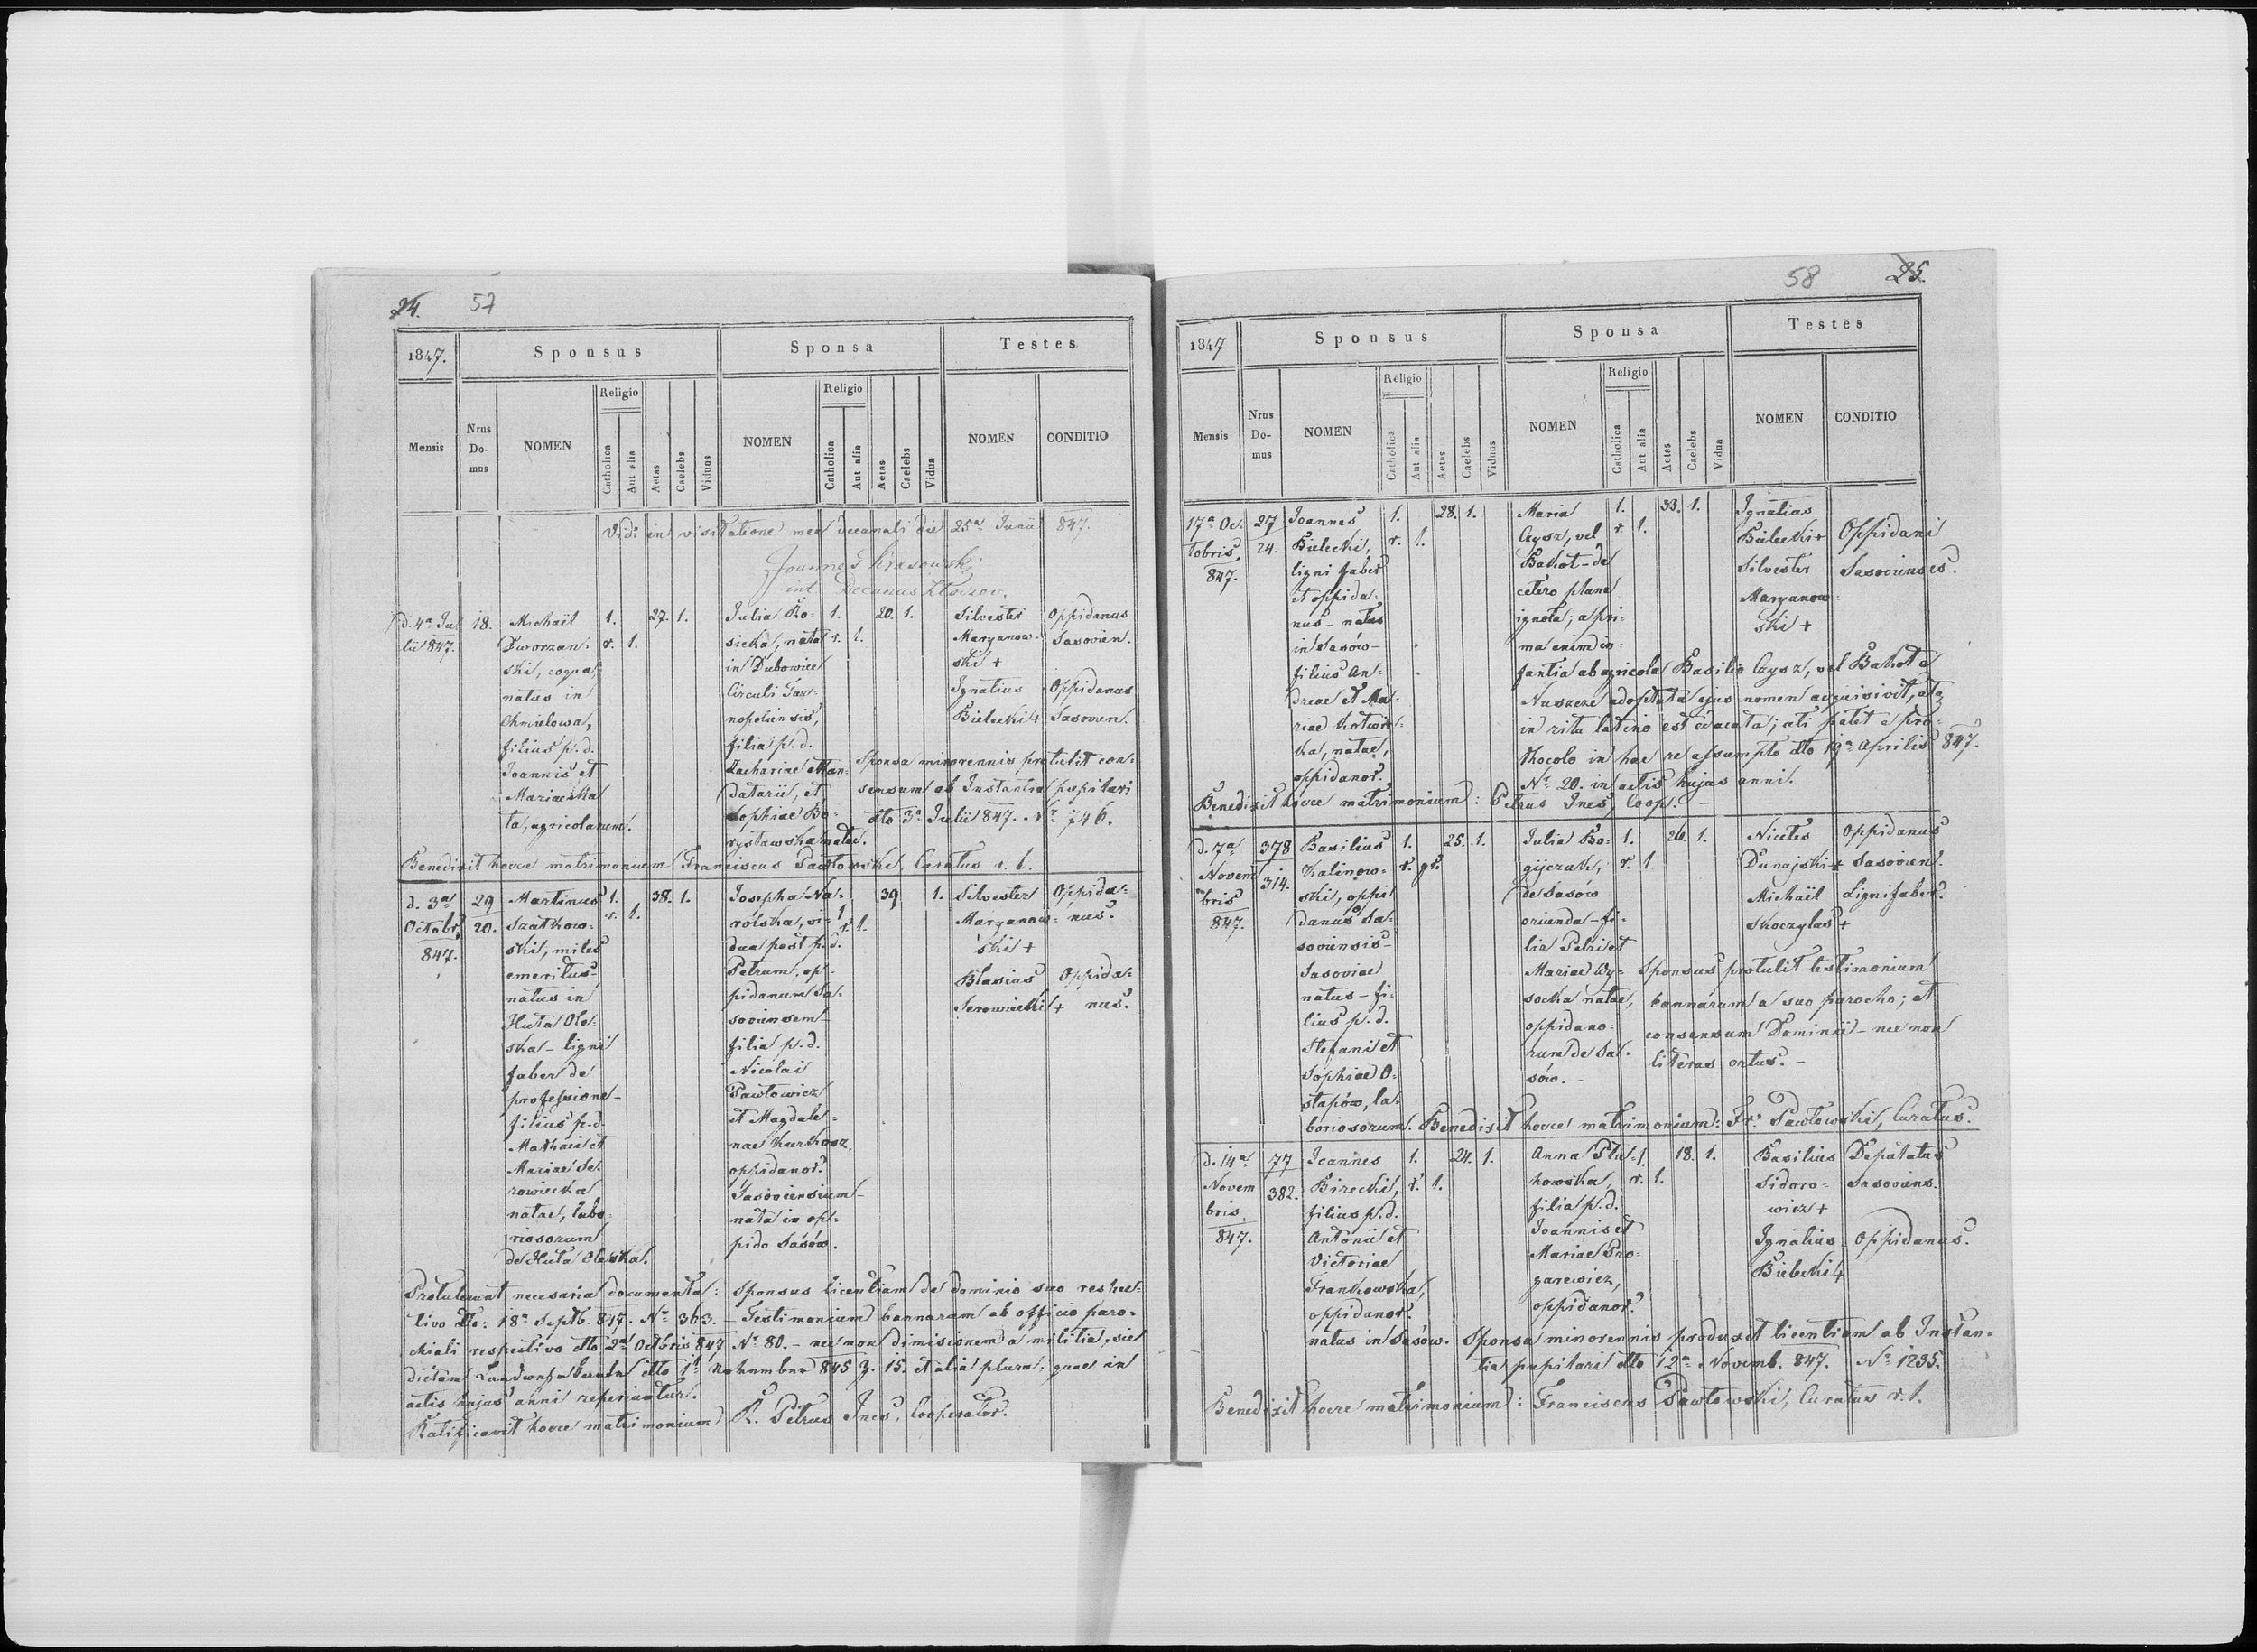 24. 57
1847.
Sponsus
Sponsa
Testes
Mensis
Nrus Do- mus
NOMEN
Religio
Catholica
Aut alia
Aetas
Caelebs
Viduus
NOMEN
Religio
Catholica
Aut alia
Aetas
Caelebs
Vidua
NOMEN
CONDITIO
Vidi in visitatione mea decanali die 25a Junii 847.
Joannes Krasowski
Decanus
d. 4a Ju-
lii 847.
18.
Michaël
Dworzan-
ski, cogna-
natus in
Chmielowa,
filius p. d.
Joannis et
Mariae
ta, agricolarum.
1.
r. 1.
27. 1.
Julia Ko-
sicka, nata
in Dubowice
Circuli Tar-
nopoliensis,
filia p. d.
Zachariae Man-
datarii, et
Sophiae Bo-
rysławska natae.
1.
r. 1.
20. 1.
Silvester
Maryanow-
ski +
Ignatius
Bielecki +
Oppidanus
Sasovien.
Oppidanus
Sasovien.
Sponsa minorennis protulit con-
sensum ab Instantia pupilari
dto 3a Julii 847. Nr. 746.
Benedixit hocce matrimonium Franciscus Pawłowski, Curatus r. l.
d. 3a
Octobr.
847.
29
20.
Martinus
Szatkow-
ski, miles
emeritus-
natus in
Huta Ole-
ska - ligni
faber de
professione -
filius p. d.
Mathaei et
Mariae Se-
rowiecka
natae, labo-
riosorum
de Huta Oleska.
1.
r. 1.
38. 1.
Josepha Na-
rolska, vi-
dua post p. d.
Petrum, op-
pidanum Sa-
soviensem -
filia p. d.
Nicolai
Pawłowicz
et Magdale-
nae Kurkosz
oppidanor.
Sasoviensium -
nata in op-
pido Sasów.
1.
r. 1.
39 1.
Silvester
Maryanow-
ski +
Blasius
Serowiecki +
Oppida-
nus.
Oppida-
nus.
Protulerunt necesaria documenta: Sponsus licentiam de dominio suo respec-
tivo dto: 18a Septb. 847. Nr 363. - Testimonium bannorum ab officio paro-
chiali respectivo dto 2a Octobris 847 Nr 80. - nec non dimissionem a militia, sic
dictam dto 1t November 845 Z. 15. et alia plura, quae in
actis hujus anni reperiuntur.
Ratificavit hocce matrimonium R. Petrus Ines, Cooperator.
58 25.
1847
Sponsus
Sponsa
Testes
Mensis
Nrus Do- mus
NOMEN
Religio
Catholica
Aut alia
Aetas
Caelebs
Viduus
NOMEN
Religio
Catholica
Aut alia
Aetas
Caelebs
Vidua
NOMEN
CONDITIO
17a Oc-
tobris
847.
27
24.
Joannes
Bielecki,
ligni faber
et oppida-
nus - natus
in Sasów -
filius An-
dreae et Ma-
riae Kotwic-
ka, natae,
oppidanor.
1.
r. 1.
28. 1.
Maria
Czysz, vel
Bahot - de
cetero plane
ignota; a pri-
ma enim in-
fantia ab agricola Basilio Czysz, vel Bahot a
Nuszcze adoptata ejus nomen acquisivit, atq
in ritu latino est educata; uti patet e pro-
thocolo in hac re assumpto dto 19a Aprilis 847.
Nr. 20. in actis hujus anni.
1.
r. 1.
33. 1.
Ignatius
Bielecki +
Silvester
Maryanow-
ski +
Oppidani
Sasovienses.
Benedixit hocce matrimonium: Petrus Ines, Coop. -
d. 7a
Novem
bris
847.
378
314.
Basilius
Kalinow-
ski, oppi
danus Sa-
soviensis -
Sasoviae
natus - fi-
lius p. d.
Stefani et
Sophiae O-
stapów, la-
boriosorum.
1.
r. gr.
25. 1.
Julia Bo-
gijczuk,
de Sasów
oriunda - fi-
lia Petri et
Mariae Wy-
socka natae,
oppidano-
rum de Sa-
sów. -
1.
r. 1.
26. 1.
Nicetes
Dunajski +
Michaël
Skoczylas +
Oppidanus
Sasovien.
Ligni faber.
Sponsus protulit testimonium
bannorum a suo parocho; et
consensum Dominii - nec non
literas ortus. -
Benedixit hocce matrimonium: Fr. Pawłowski, Curatus.
d. 14a
Novem
bris
847.
77
382.
Joannes
Birecki,
filius p. d.
Antonii et
Victoriae
Frankowska,
oppidanor.
natus in Sasów.
1.
r. 1.
24. 1.
Anna
howska,
filia p. d.
Joannis et
Mariae
garewicz,
oppidanor.
1.
r. 1.
18. 1.
Basilius
Sidoro-
wicz +
Ignatius
Bielecki +
Deputatus
Sasoviens.
Oppidanus.
Sponsa minorennis produxit licentiam ab Instan-
tia pupilari dto 12a Novemb. 847. Nr 1235.
Benedixit hocce matrimonium: Franciscus Pawłowski, Curatus r. l.